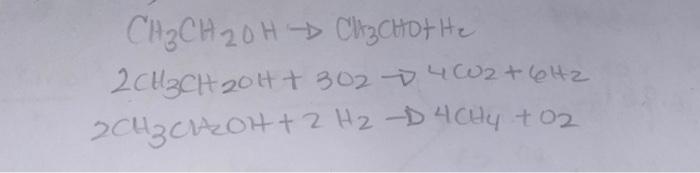 CH3CH2OH → CH3CHO + H2
2CH3CH2OH + 3O2 → 4CO2 + 6H2
2CH3CH2OH + 2 H2 → 4CH4 + O2